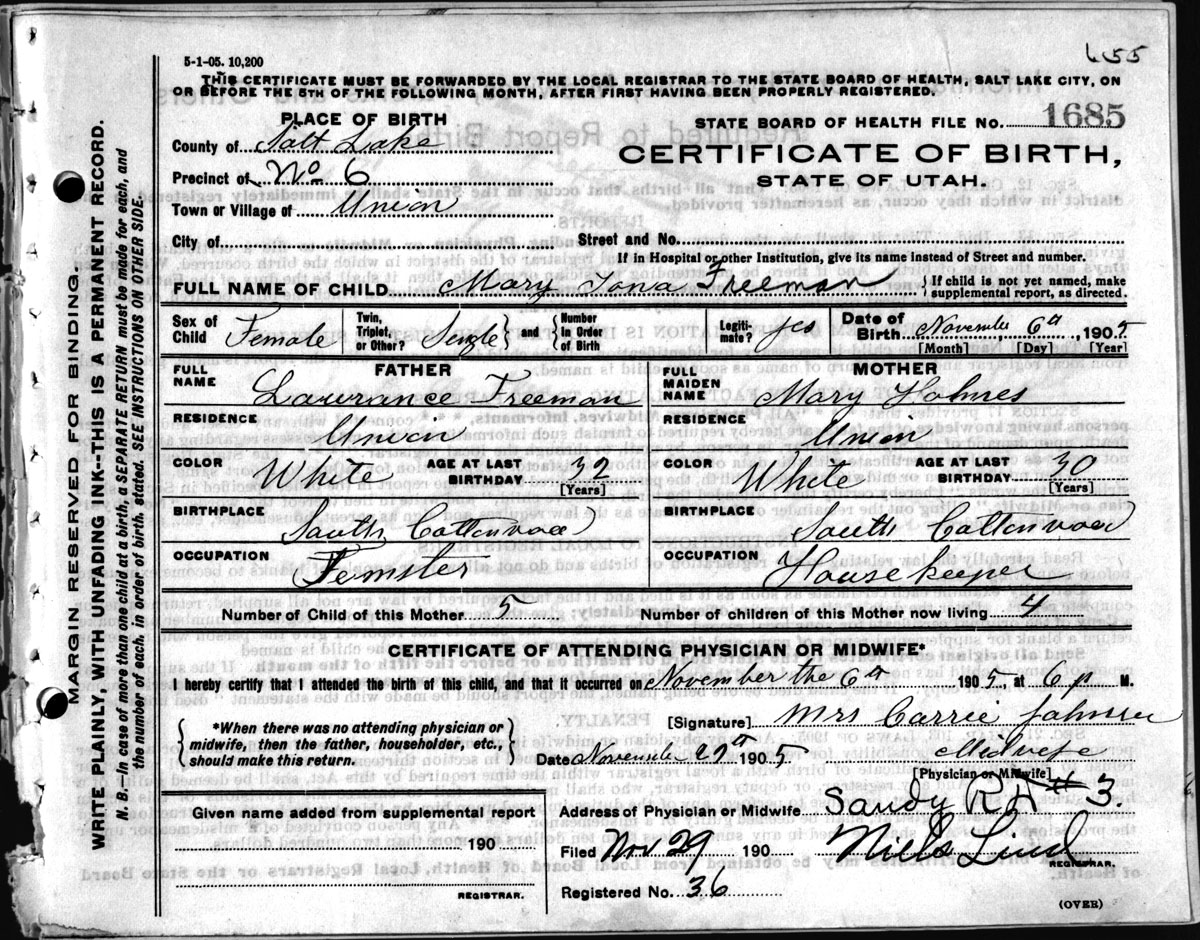 5-1-05. 10,200
655
THIS CERTIFICATE MUST BE FORWARDED BY THE LOCAL REGISTRAR TO THE STATE BOARD OF HEALTH, SALT LAKE CITY, ON
OR BEFORE THE 5TH OF THE FOLLOWING MONTH, AFTER FIRST HAVING BEEN PROPERLY REGISTERED.
PLACE OF BIRTH
STATE BOARD OF HEALTH FILE NO. 1685
County of Salt Lake
CERTIFICATE OF BIRTH,
Precinct of No 6
STATE OF UTAH.
Town or Village of Union
City of Street and No.
If in Hospital or other Institution, give its name instead of Street and number.
FULL NAME OF CHILD Mary Iona Freeman { If child is not yet named, make
supplemental report, as directed.
Sex of Child Female Twin, Triplet, or Other? Single } and { Number In Order of Birth Legiti-mate? yes Date of Birth November 6th, 1905
[Month] [Day] [Year]
FATHER MOTHER
FULL NAME Lawrance Freeman FULL MAIDEN NAME Mary Holmes
RESIDENCE Union RESIDENCE Union
COLOR White AGE AT LAST BIRTHDAY 32 [Years] COLOR White AGE AT LAST BIRTHDAY 30 [Years]
BIRTHPLACE South Cottonwood BIRTHPLACE South Cottonwood
OCCUPATION OCCUPATION Housekeeper
Number of Child of this Mother 5 Number of children of this Mother now living 4
CERTIFICATE OF ATTENDING PHYSICIAN OR MIDWIFE*
I hereby certify that I attended the birth of this child, and that it occurred on November the 6th 1905, at 6 p M.
{ *When there was no attending physician or
midwife, then the father, householder, etc.,
should make this return. }
[Signature] Mrs Carrie Johnson
Date November 29th 1905 Midwife
[Physician or Midwife]
Given name added from supplemental report
190
REGISTRAR.
Address of Physician or Midwife Sandy R.D #3.
Filed Nov 29 190 Niels Lind
REGISTRAR.
Registered No. 36
(OVER)
MARGIN RESERVED FOR BINDING.
WRITE PLAINLY, WITH UNFADING INK--THIS IS A PERMANENT RECORD.
N. B.—In case of more than one child at a birth, a SEPARATE RETURN must be made for each, and
the number of each, in order of birth, stated. SEE INSTRUCTIONS ON OTHER SIDE.